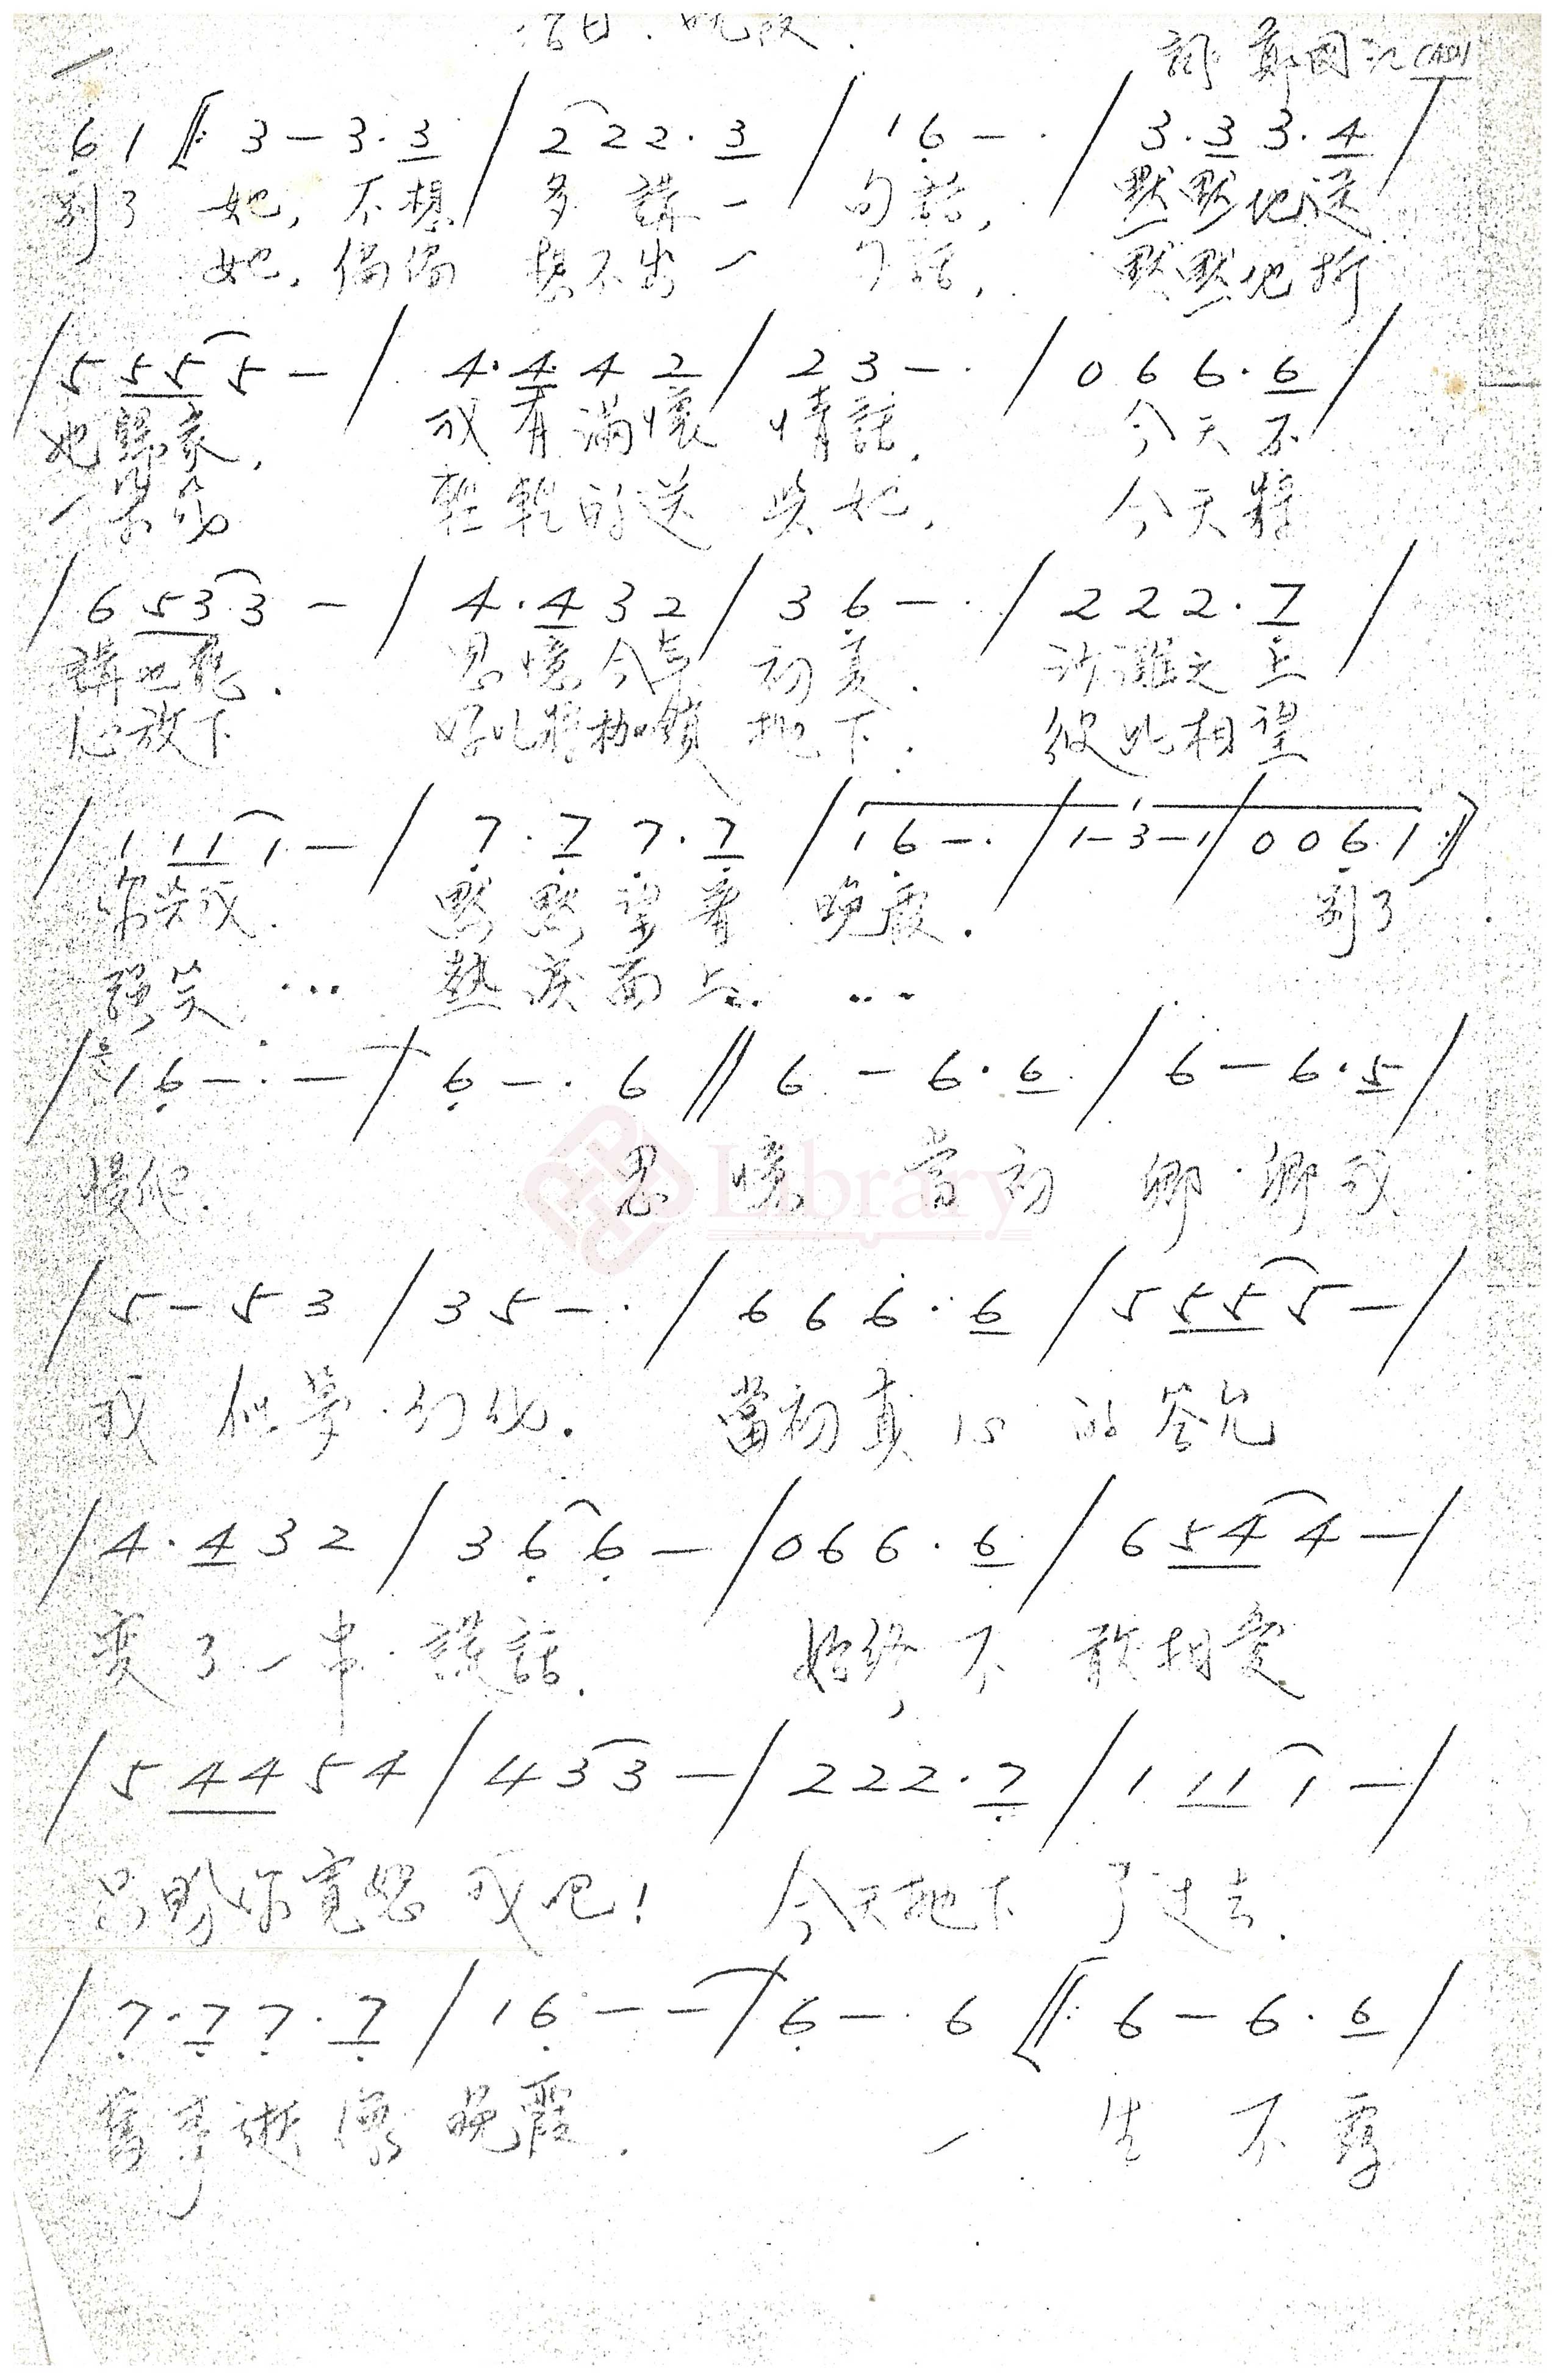 詞 鄭國江 CASH
6 1 ‖: 3 — 3 . 3 / 2 2 2 . 3 / 1 6 — . / 3 . 3 3 . 4 /
別了 她, 不想 多講一 句話, 默默地送
她, 偏偏 想不出一 句話, 默默地折
/ 5 5 5 5 — / 4 . 4 4 2 / 2 3 — . / 0 6 6 . 6 /
她歸家, 我有滿懷 情話, 今天不
輕輕的送 她, 今天將
/ 6 5 3 3 — / 4 . 4 3 2 / 3 6 — . / 2 2 2 . 7 /
講也罷. 思憶今年 初夏. 沙灘之上
心放下 好比將枷鎖 拋下. 彼此相望
/ 1 1 1 1 — / 7 . 7 7 . 7 / 1 6 — . / 1 — 3 — 1 / 0 0 6 1 :‖
你共我. 默默望著 晚霞. 別了
強笑 ... 熱淚面上 ...
/ 1 6 — . — / 6 — . 6 ‖ 6 — 6 . 6 / 6 — 6 . 5 /
慢爬. 思憶當初 卿卿我
/ 5 — 5 3 / 3 5 — . / 6 6 6 . 6 / 5 5 5 5 — /
我 似夢幻 當初真 的答允
/ 4 . 4 3 2 / 3 6 6 — / 0 6 6 . 6 / 6 5 4 4 — /
變了一串謊話. 始終不敢相愛
/ 5 4 4 5 4 / 4 3 3 — / 2 2 2 . 7 / 1 1 1 1 — /
你寬恕我吧! 今天拋下了過去.
/ 7 . 7 7 . 7 / 1 6 — — / 6 — . 6 ‖: 6 — 6 . 6 /
舊事逝像晚霞. 一生不
Library